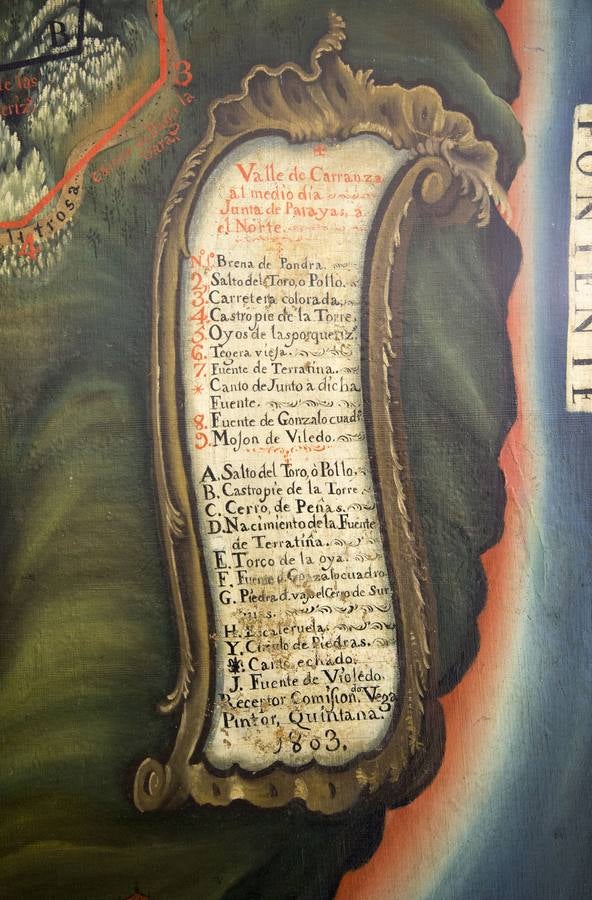 B
3
4
litrosa
PONIENTE
Valle de Carranza
al medio dia
Junta de Parayas, a
el Norte.
N.º 1º Brena de Pondra.
2. Salto del Toro, o Pollo.
3. Carretera colorada.
4. Castro pie de la Torre.
5. Oyos de las porqueriz.
6. Tegera vieja.
7. Fuente de Terratina.
* Canto de Junto à dicha
Fuente.
8. Fuente de Gonzalo cuadº
9. Mojon de Viledo.
A. Salto del Toro, ò Pollo.
B. Castropie de la Torre
C. Cerro, de Peñas.
D. Nacimiento de la Fuente
de Terratiña.
E. Torco de la oya.
F. Fuente d. Gonzalo cuadro
G. Piedra d. vajo el Cerro de Sur
H. Escaleruela.
Y. Circulo de Piedras.
* Canto echado.
J. Fuente de Violedo.
Receptor Comision.do Vega
Pintor, Quintana.
1803.